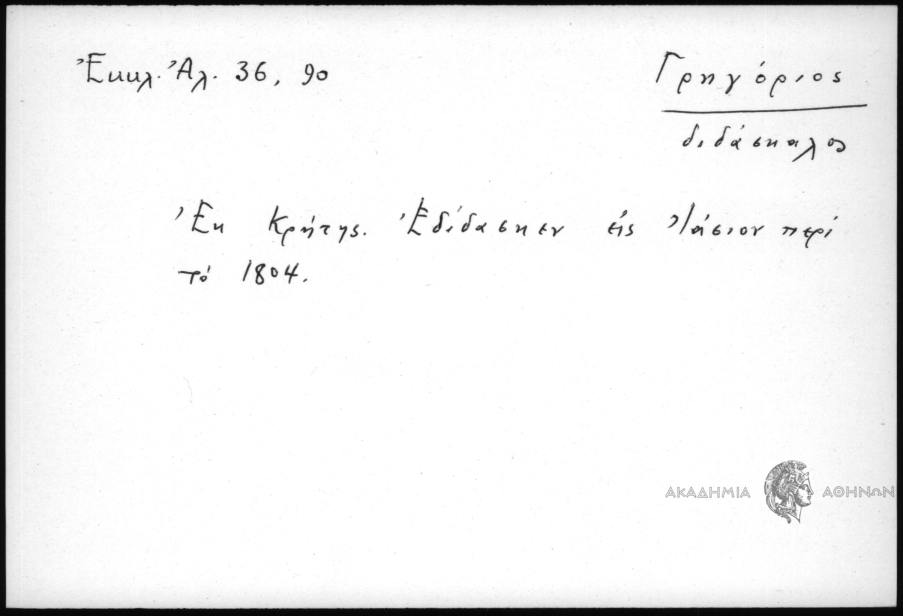 Ἐκκλ. Ἀλ. 36, 90
Γρηγόριος
διδάσκαλος
Ἐκ Κρήτης. Ἐδίδασκεν εἰς Ἰάσιον περί
τό 1804.
ΑΚΑΔΗΜΙΑ ΑΘΗΝΩΝ